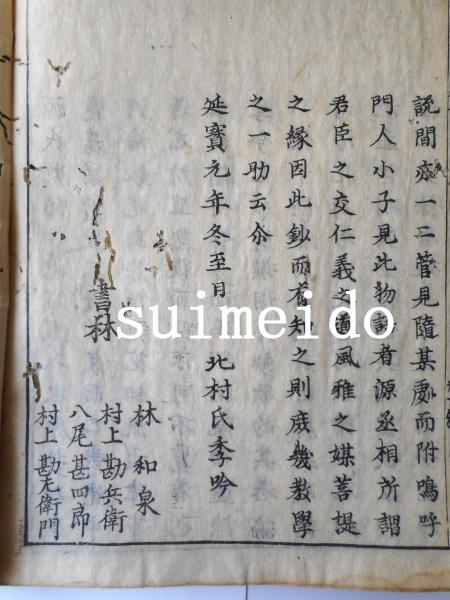 説間亦一二管見隨某處而附嗚呼
門人小子見此物語者源丞相所謂
君臣之交仁義之道風雅之媒菩提
之縁因此鈔而有知之則庶幾教學
之一助云尒
延寶元年冬至日 北村氏季吟
書林
林和泉
村上勘兵衛
八尾甚四郎
村上勘左衛門
suimeido